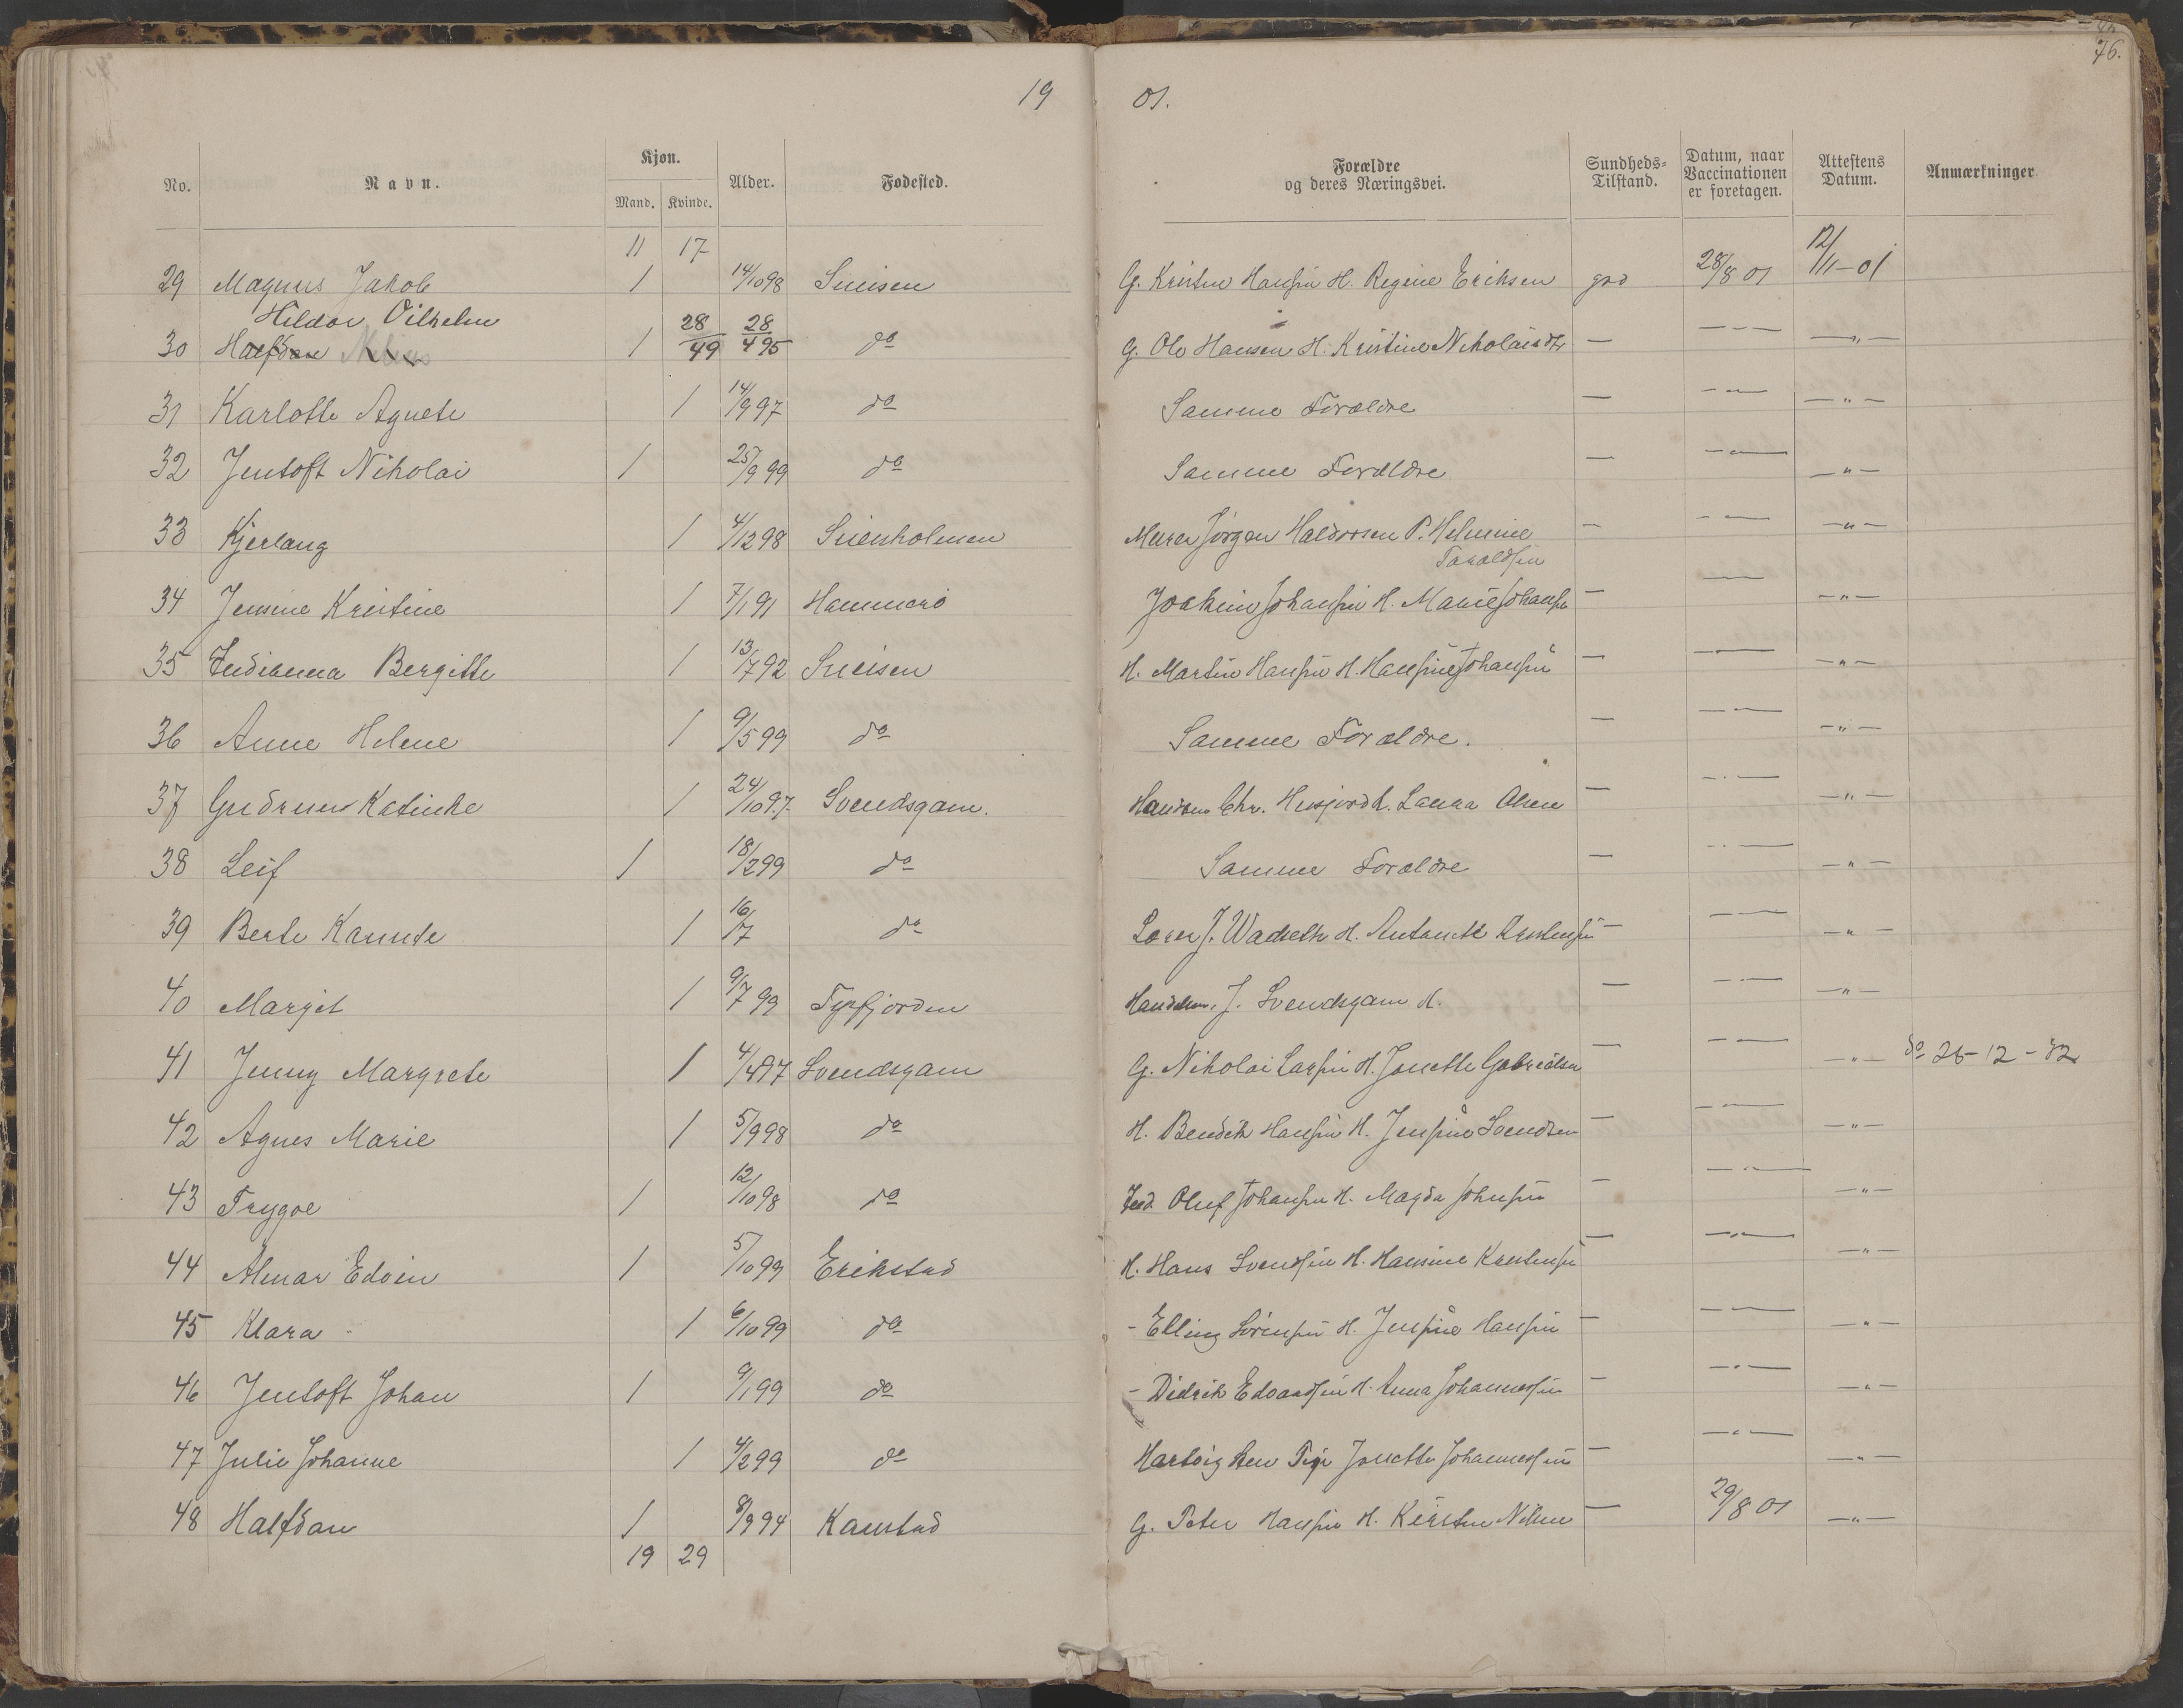 76.
19 01.
No. Navn. Kjøn. Mand. Kvinde. Alder. Fødested. Forældre og deres Næringsvei. Sundheds-Tilstand. Datum, naar Vaccinationen er foretagen. Attestens Datum. Anmærkninger
11 17
29 Magnus Jakob 1 14/10 98 G. Hansen H. Regine Eriksen god 28/8 01 12/11-01
Hildor Vilhelm
30 Halfdan 1 28/49 28/4 95 do G. Ole Hansen H. Kristine Nikolaisdtr — — — — —„—
31 Karlotte Agnete 1 14/9 97 do Samme Forældre — — „ — —„—
32 Jentoft Nikolai 1 25/9 99 do Samme Forældre — — „ — —„—
33 Kjerlaug 1 4/12 98 Murer Jørgen Haldorsen P. Helmine — — „ — —„—
Taraldsen
34 Jensine Kristine 1 7/1 91 Hammerö Joakim Johansen H. Marie Johansen — —— —„—
35 Indianna Bergitte 1 13/7 92 H. Martin Hansen H. Hansine Johansen — — „ — —„—
36 Anne Helene 1 9/5 99 do Samme Forældre. — — „ — —„—
37 Gudrun Katinka 1 24/10 97 Svendsgam. Chr. Husjord H. Laura Olsen — — „ — —„—
38 Leif 1 18/2 99 do Samme Forældre — — „ — —„—
39 Karunde 1 16/7 do J. H. — — „ — —„—
40 Margit 1 9/7 99 Tysfjorden Handelsm. J. Svendsgam H. — — „ — —„—
41 Jenny Margrete 1 4/4 97 Svendsgam G. Nikolai Larsen H. Jonette Gabrielsen — — „ — —„— do 26-12-32
42 Agnes Marie 1 5/9 98 do H. Bendik Hansen H. Jensine Svendsen — — „ — —„—
43 Trygve 1 12/10 98 do Ind. Oluf Johansen H. Magda Johnsen — — „ — —„—
44 Almar Edvin 1 5/10 99 Erikstad H. Hans Svendsen H. Hansine Kristensen — — „ — —„—
45 Klara 1 6/10 99 do - Elling Sörensen H. Jensine Hansen — — „ — —„—
46 Jentoft Johan 1 9/1 99 do - Didrik Edvardsen H. Anna Johannessen — — „ — —„—
47 Julie Johanne 1 4/2 99 do Hartvig Pige Jonette Johannessen — — „ — —„—
48 Halfdan 1 8/9 94 Kanstad G. Peter Hansen H. Kirsten Nilsen — 29/8 01 —„—
19 29